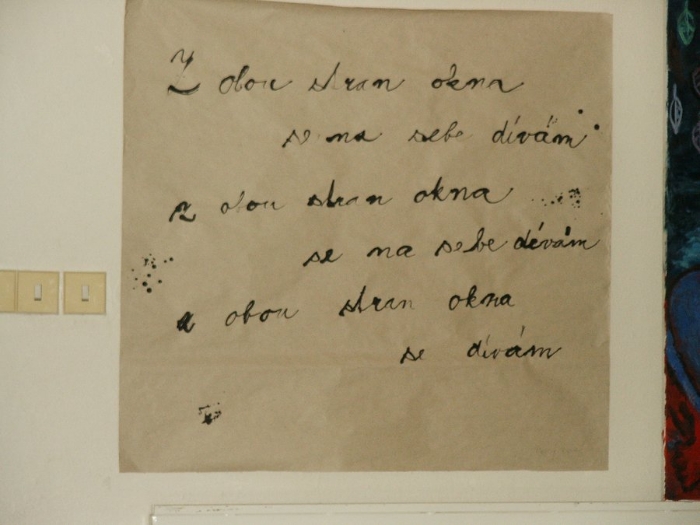 Z obou stran okna
se na sebe dívám
z obou stran okna
se na sebe dívám
z obou stran okna
se dívám